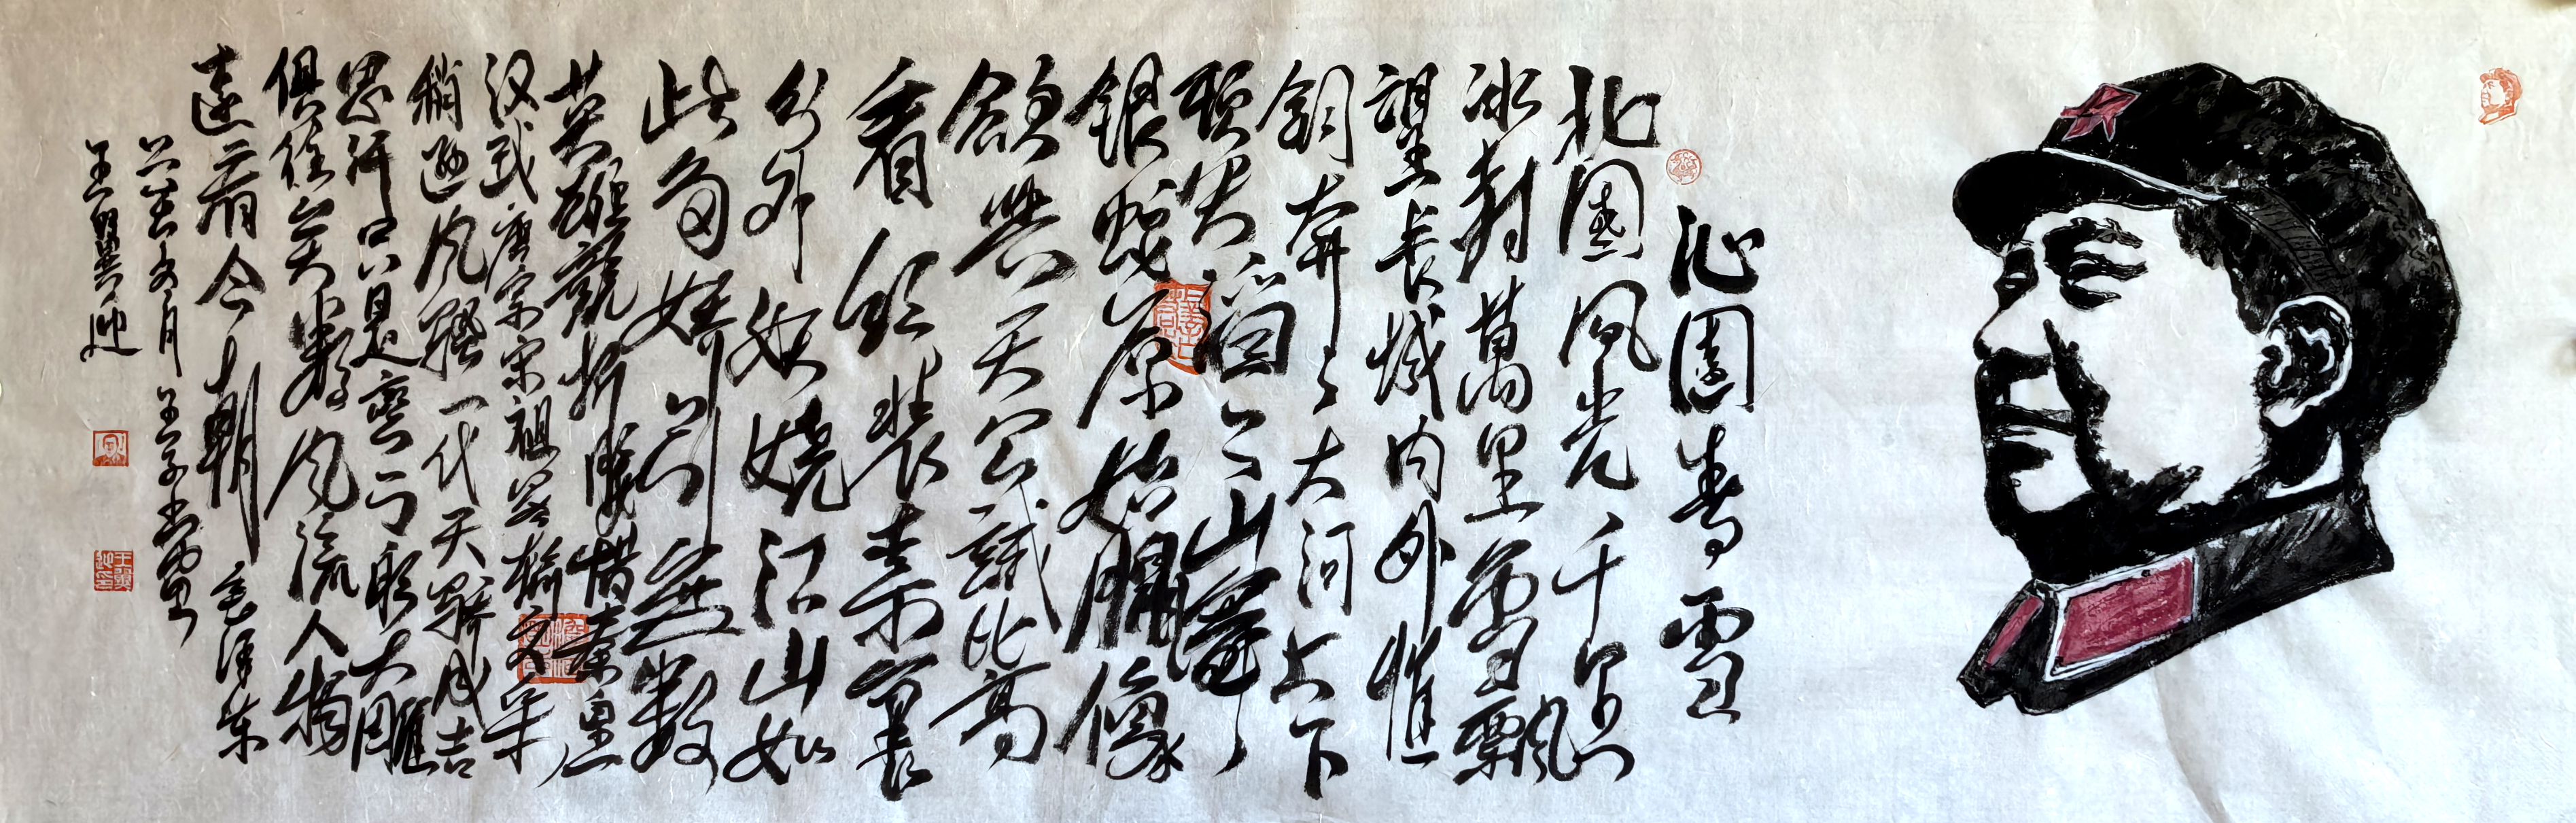 沁园春雪
北国风光千里
冰封萬里雪飘
望长城内外惟
馀莽々大河上下
顿失滔々山舞
银蛇原驰腊像
欲与天公試比高
看红装素裹
分外妖娆江山如
此多娇引無數
英雄競折腰惜秦皇
汉武唐宗宋祖略输文采
稍逊风骚一代天骄成吉
思汗只是弯弓射大雕
俱往矣数风流人物
还看今朝 毛泽东
王子书画
王翼迎